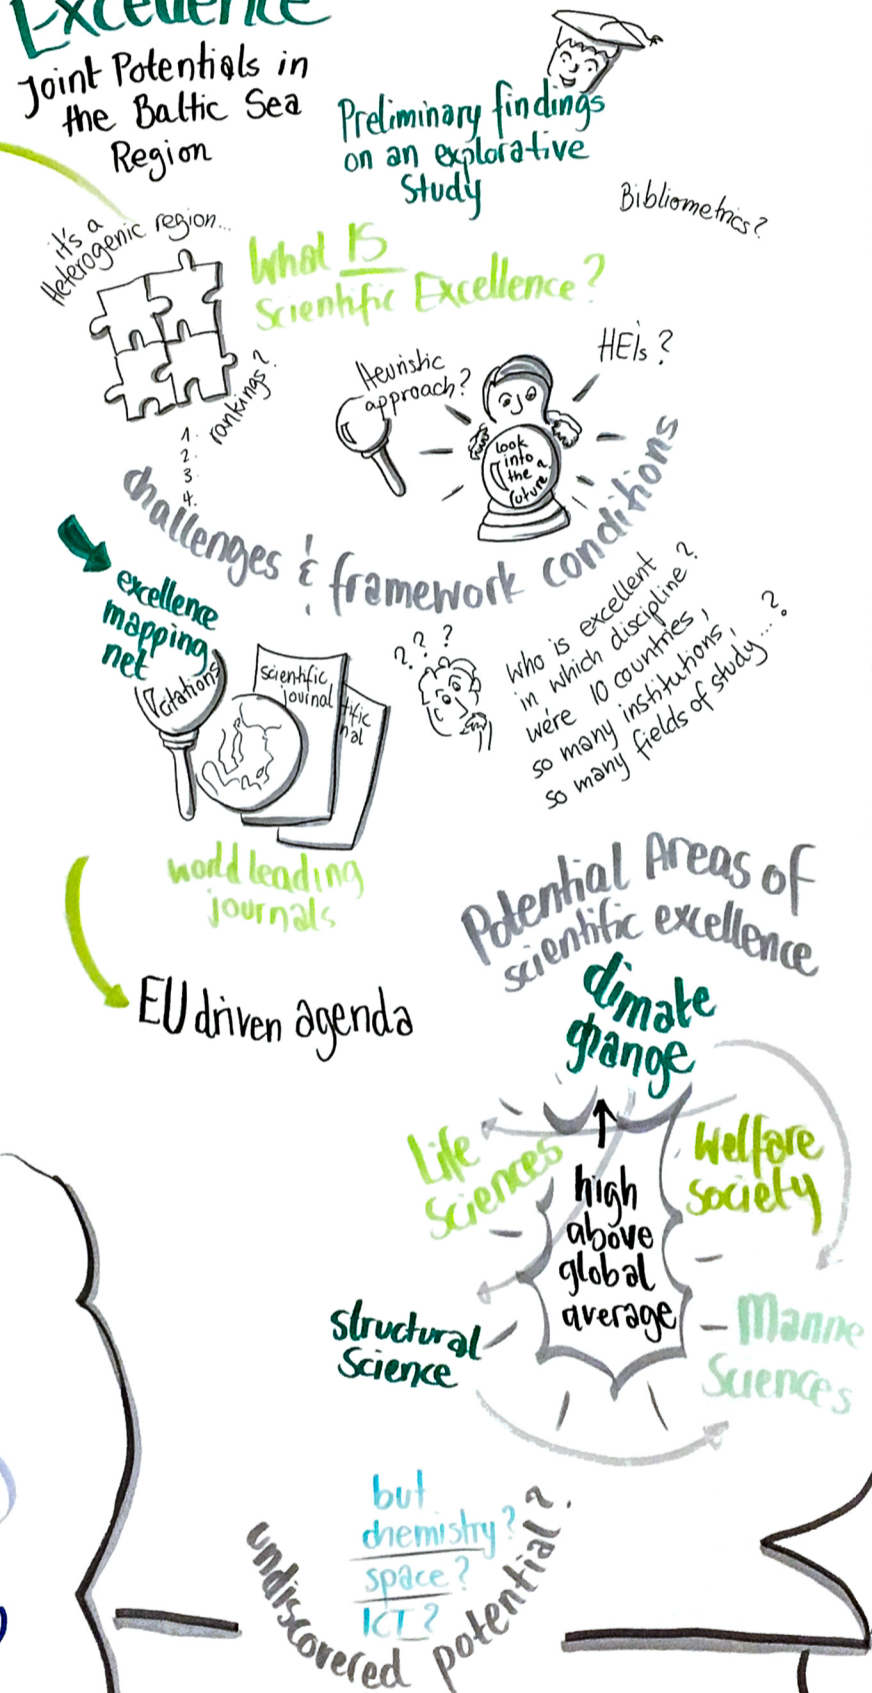 Excellence
Joint Potentials in
the Baltic Sea
Region
Preliminary findings
on an explorative
Study
Bibliometrics?
it's a
Heterogenic region...
What IS
Scientific Excellence?
rankings?
1.
2.
3
4.
Heuristic
approach?
HEIs?
Look
into
the
future
challenges & framework conditions
excellence
mapping
net
citations
scientific
journal
tific
nal
? ? ?
who is excellent
in which discipline?
we're 10 countries,
so many institutions,
so many fields of study...?
world leading
journals
EU driven agenda
Potential Areas of
scientific excellence
climate
change
Life
Sciences
Welfare
society
high
above
global
average
structural
Science
Marine
Sciences
but
chemistry?
space?
ICT?
undiscovered potential?